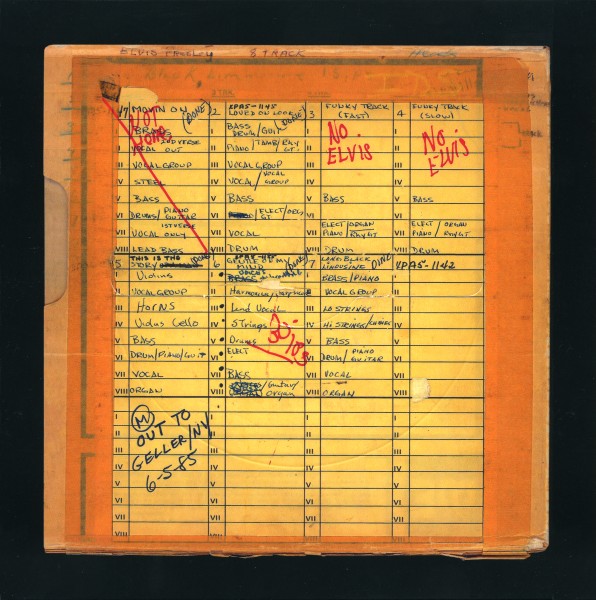 ELVIS PRESLEY 8 TRACK
1 MOVIN ON (DONE)
NOT DONE
I BRASS
II VOCAL OUT 2ND VERSE
III VOCAL GROUP
IV STEEL
V BASS
VI DRUMS/PIANO GUITAR
VII VOCAL ONLY 1ST VERSE
VIII LEAD BASS
2 XPA5-1145
I BASS
DRUM/GUIT
II PIANO/TAMB/RHY GT.
III VOCAL GROUP
IV VOCAL/VOCAL GROUP
V BASS
VI ELECT/ORG GT
VII VOCAL
VIII DRUM
3 FUNKY TRACK
(FAST)
NO
ELVIS
V BASS
VI
VII ELECT/ORGAN
PIANO/RHY GT
VIII DRUM
4 FUNKY TRACK
(SLOW)
NO
ELVIS
V BASS
VI
VII ELECT/ORGAN
PIANO/RHY GT
VIII DRUM
5 THIS IS THE
STORY (DONE)
I Violins
II VOCAL GROUP
III HORNS
IV Violas Cello
V BASS
VI DRUM/PIANO/GUIT
VII VOCAL
VIII ORGAN
6 GENTLE ON MY
MIND
II Harmonica
III Lead Vocal
IV Strings
V Drums
VI ELECT
VII BASS
VIII Guitar/Organ
30 IPS
7 LONG BLACK
LIMOUSINE DONE
I BRASS/PIANO
II VOCAL GROUP
III LO STRINGS
IV HI STRINGS/CHIMES
V BASS
VI DRUM/PIANO GUITAR
VII VOCAL
VIII ORGAN
XPA5-1142
M
OUT TO
GELLER/NY
6-5-85